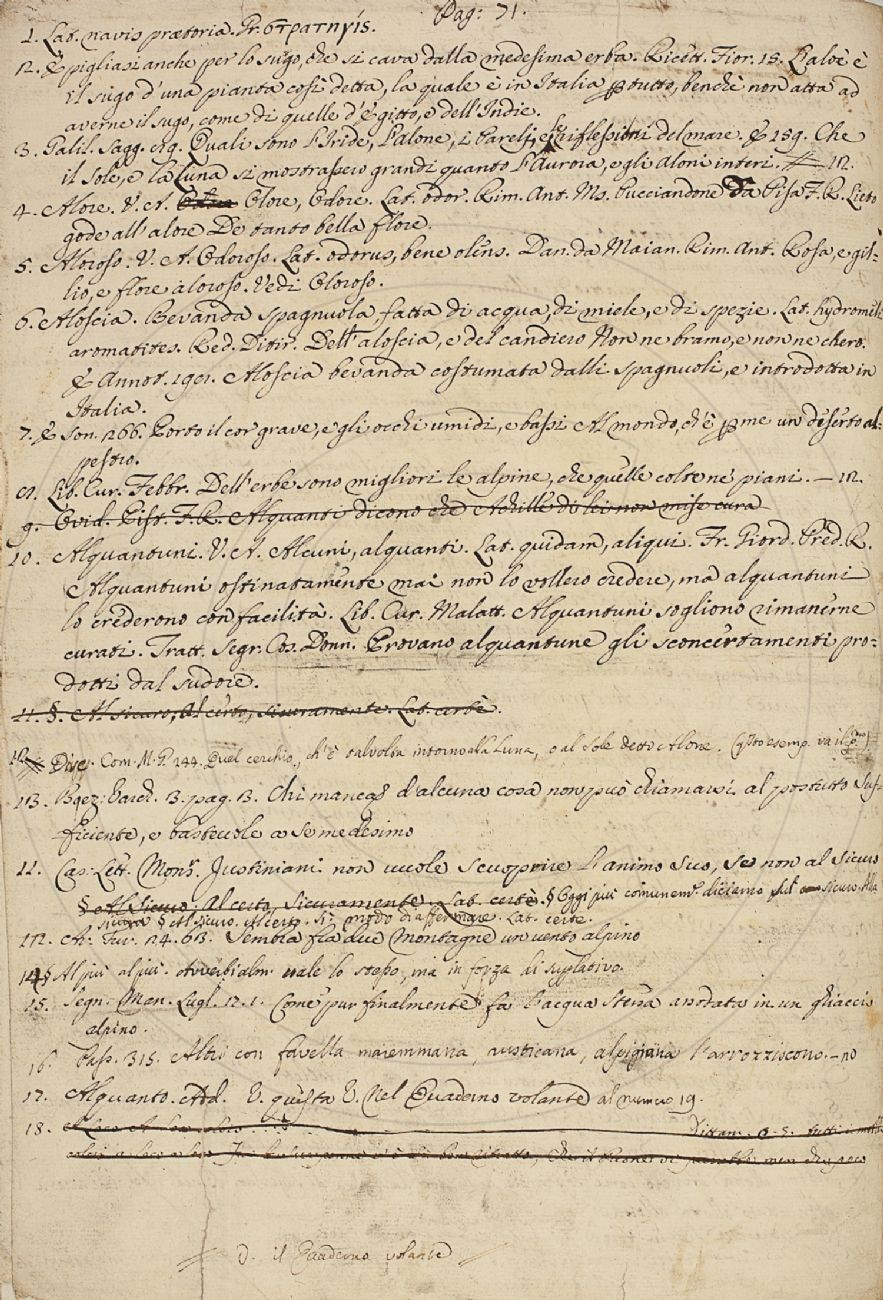 Pag: 71.
1. Lat. navis prætoria. Gr. στρατηγίς.
2. § pigliasi anche per lo sugo, che si cava dalla medesima erba. Ricett. Fior. 15. L'aloè è
il sugo d'una pianta così detta, la quale è in Italia ꝑ tutto, benchè non atta ad
averne il sugo, come di quelle d'Egitto, e dell'Indie.
3. Galil. Sagg. 119. Quali sono l'Iride, l'alone, i Parelj, e le riflessioni del mare. E 159. Che
il Sole, e la Luna si mostrassero grandi quanto l'Aurora, e gli aloni interi. 12.
4. Alore. V. A. Olore, Odore. Lat. odor. Rim. Ant. Ms. Pucciandone da Pisa F. R. Lieto
gode all'alore De tanto bella flore.
5. Aloroso. V. A. Odoroso. Lat. odorus, bene olens. Dan. da Maian. Rim. Ant. Rosa, e gil-
lio, e flore aloroso. Vedi Oloroso.
6. Aloscia. Bevanda spagnuola fatta di acqua, di miele, e di spezie. Lat. hydromeli
aromatites. Red. Ditir. Dell'aloscia, e del candiero Non ne bramo, e non ne chero.
E Annot. 191. Aloscia bevanda costumata dalli spagnuoli, e introdotta in
Italia.
7. E son. 266. Porto il cor grave, e gli occhi umidi, e bassi Al mondo, ch'è ꝑ me un diserto al-
pestro.
8. Lib. Cur. Febbr. Dell'erbe sono migliori le alpine, che quelle colte ne' piani. —
9. Ovid. Pist. F. R. Alquanti dicono che Achille di lei non mise cura
10. Alquantuni. V. A. Alcuni, alquanti. Lat. quidam, aliqui. Fr. Giord. Pred. R.
Alquantuni ostinatamente mai non lo vollero credere, ma alquantuni
lo crederono con facilità. Lib. Cur. Malatt. Alquantuni sogliono rimanerne
curati. Tratt. Segr. Cos. Donn. Provano alquantune gli sconcertamenti pro-
dotti dal sudore.
11. §. Al sicuro, Al certo, sicuramente. Lat. certè.
Com. M. P. 244. Quel cerchio, ch'è talvolta intorno alla Luna, o al Sole detto Alone.
13. Boez. Varch. 3. pag. 13. Chi manca d'alcuna cosa non può chiamarsi al postutto suf-
ficiente, e bastevole a se medesimo
11. Cas. Lett. Mons. Justiniani non vuole scuoprire l'animo suo, se non al sicuro
§ Al Sicuro; Al certo, sicuramente. Lat. certè. § Oggi più comunem. diciamo sicuro. Alla
sicura § Al sicuro. Al certo. modo di affermare. Lat. certe.
12. Ar. Fur. 24. 63. Sembra fra due Montagne un vento alpino
14 § Al più al più. Avverbialm. vale lo stesso, ma in forza di suplativo.
15. Segn. Man. Lugl. 12. 1. Come pur finalmente fa l'acqua stessa assodata in un ghiaccio
alpino.
16. pass. 315. Altri con favella maremmana, rusticana, alpigiana l'arrozziscono. — no
17. Alquanto. Add. V. questa V. Nel Quaderno volante al numero 19.
18.
Dittam.
il Quaderno volante